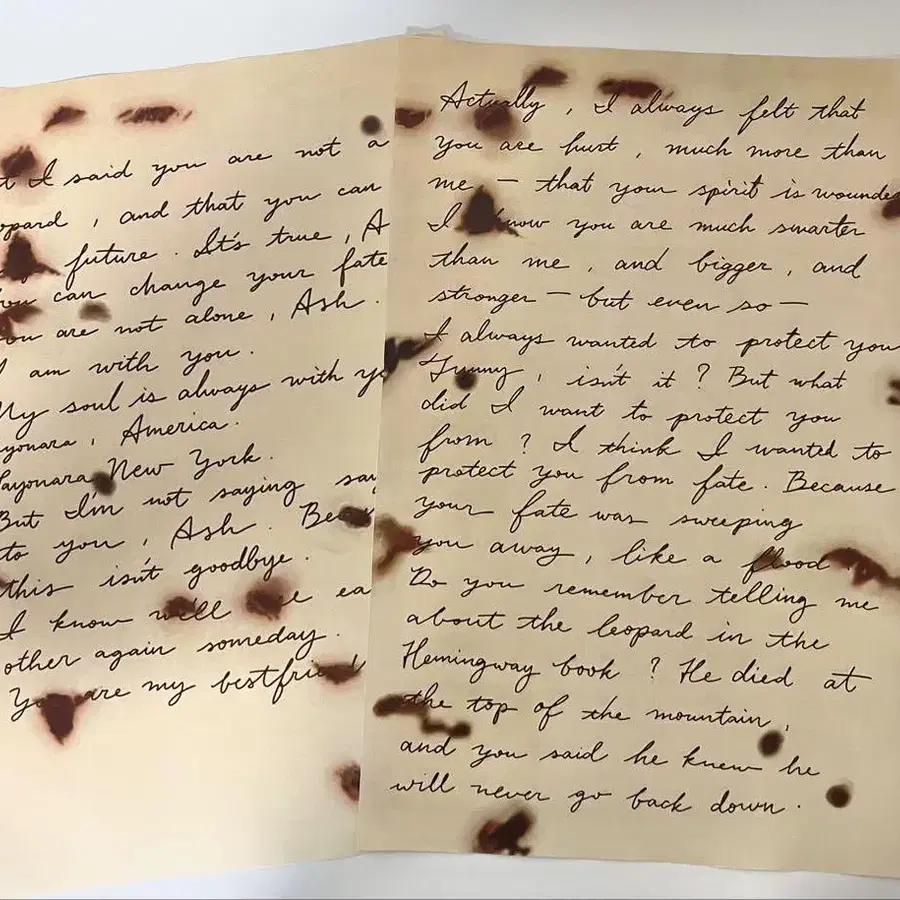 t I said you are not a
opard, and that you can
future. It's true, A
you can change your fate
you are not alone, Ash.
I am with you.
My soul is always with yo
yonara, America.
Sayonara New York.
But I'm not saying say
to you, Ash. Bec
this isn't goodbye.
I know we'll see ea
other again someday.
You are my bestfriend
Actually, I always felt that
you are hurt, much more than
me — that your spirit is wounde
I know you are much smarter
than me, and bigger, and
stronger — but even so —
I always wanted to protect you
Funny, isn't it? But what
did I want to protect you
from? I think I wanted to
protect you from fate. Because
your fate was sweeping
you away, like a flood
Do you remember telling me
about the leopard in the
Hemingway book? He died at
the top of the mountain,
and you said he knew he
will never go back down.